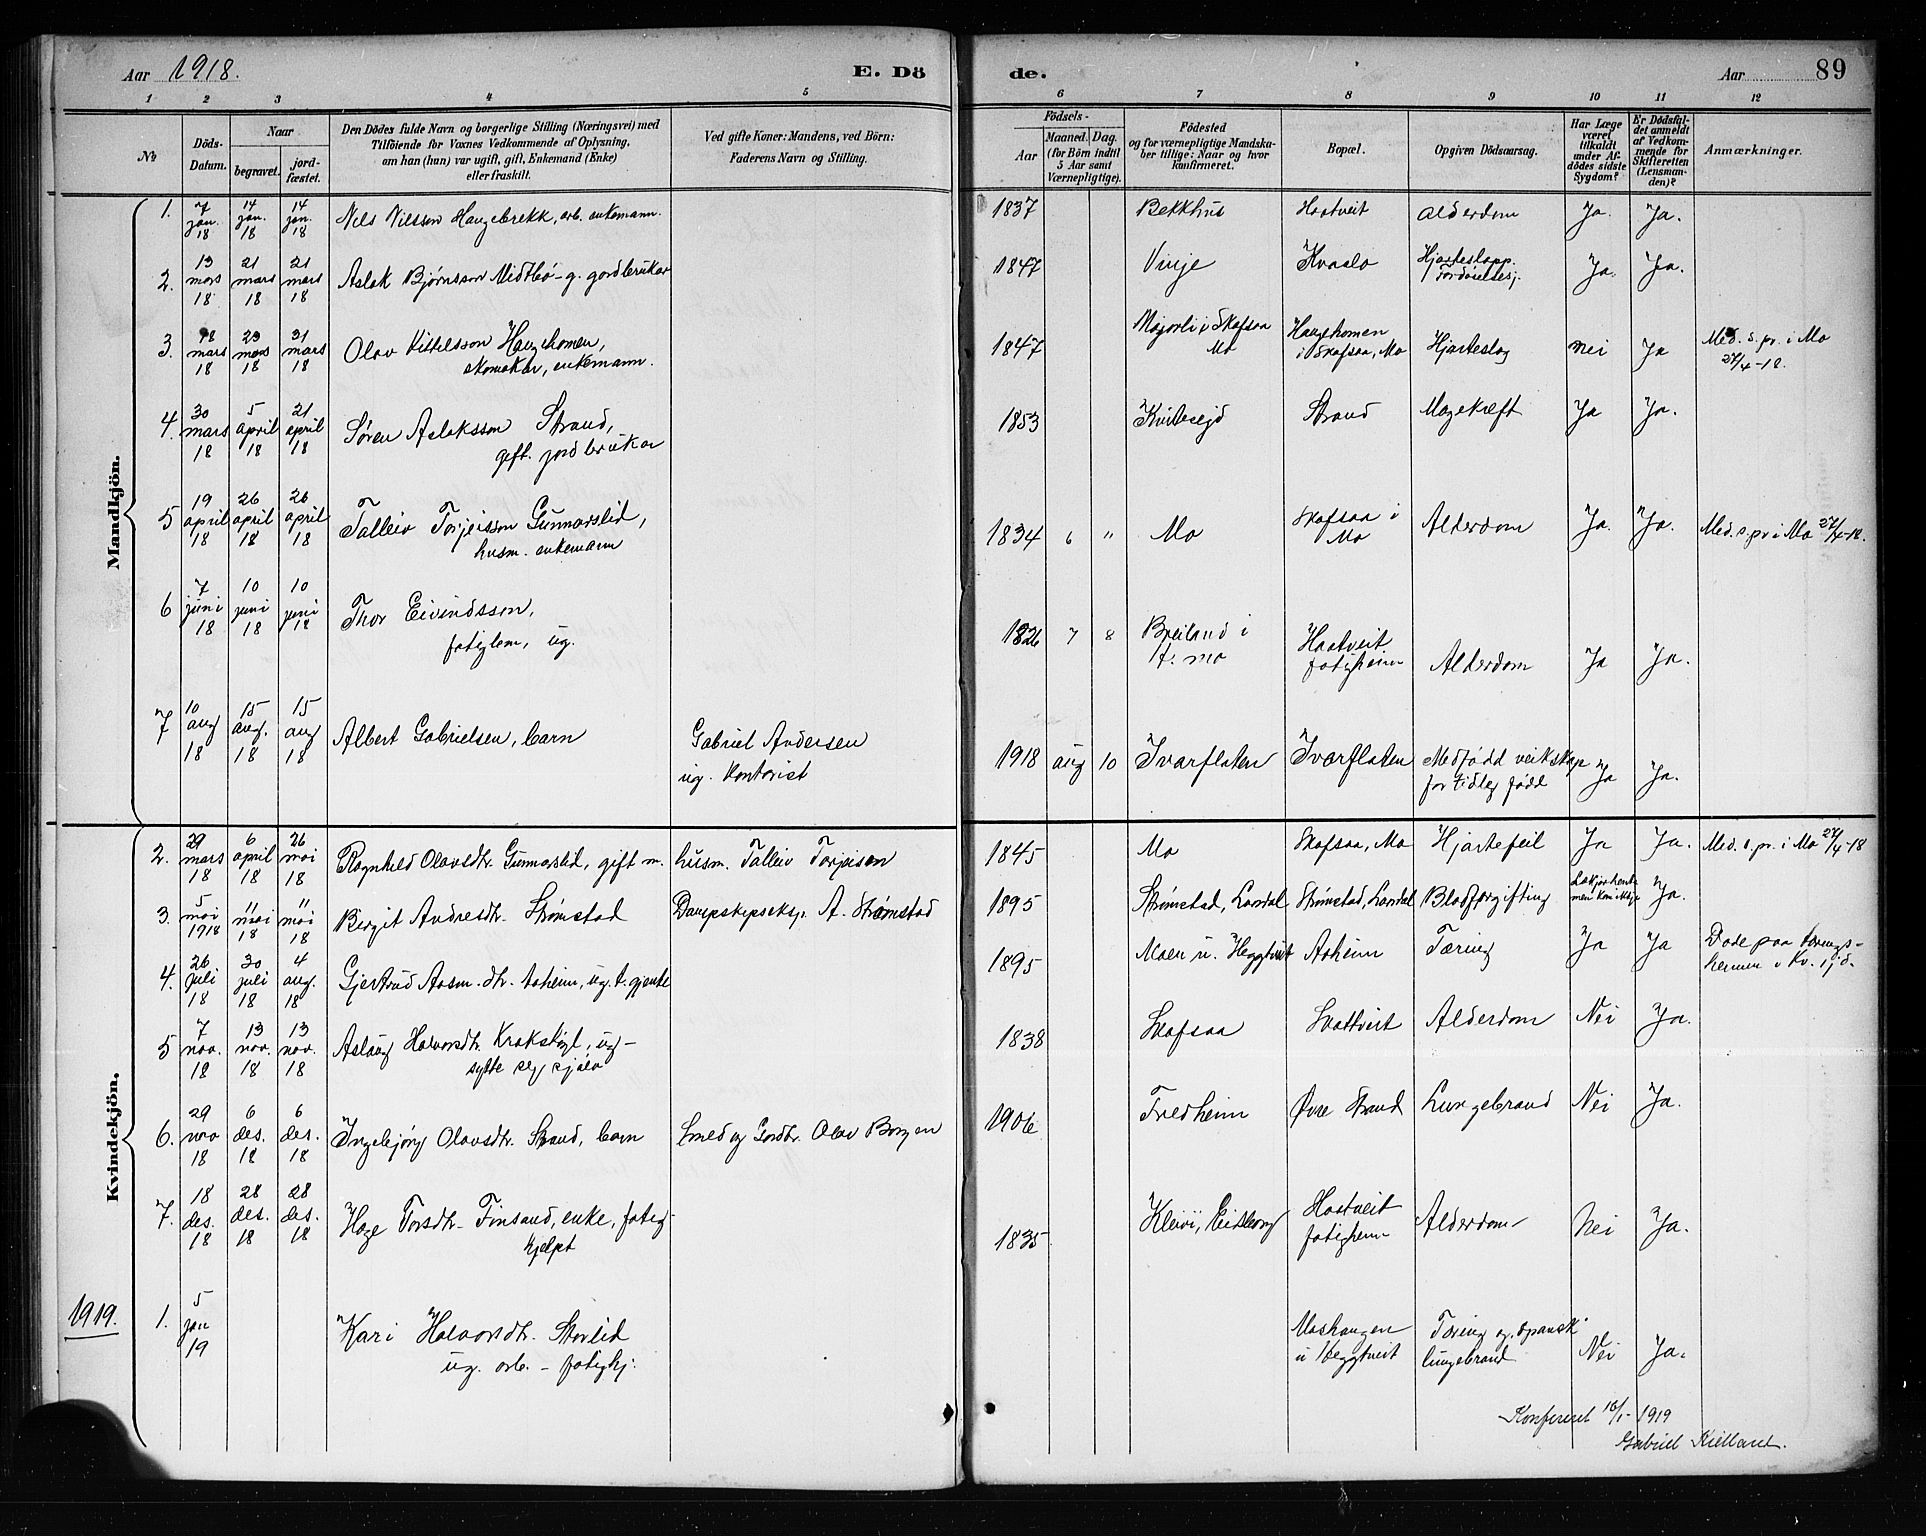 Aar 1918. E. Dö de. Aar 89
1 2 3 4 5 6 7 8 9 10 11 12
№ Döds-Datum. Naar begravet. jord-fæstet. Den Dödes fulde Navn og borgerlige Stilling (Næringsvei) med Tilföiende for Voxnes Vedkommende af Oplysning, om han (hun) var ugift, gift, Enkemand (Enke) eller fraskilt. Ved gifte Koner: Mandens, ved Börn: Faderens Navn og Stilling. Födsels- Aar Maaned. Dag. (for Börn indtil 5 Aar samt Værnepligtige). Födested og for værnepligtige Mandskaber tillige: Naar og hvor konfirmeret. Bopæl. Opgiven Dödsaarsag. Har Læge været tilkaldt under Afdödes sidste Sygdom? Er Dödsfaldet anmeldt af Vedkommende for Skifteretten (Lensmanden)? Anmærkninger.
Mandkjön.
1. 7 jan. 18 14 jan. 18 14 jan. 18 Nils Nilssen Haugebrekk, arb. enkemann. 1837 Bekkhus Haatveit Alderdom Ja. Ja.
2. 13 mars 18 21 mars 18 21 mars 18 Aslak Bjørnsson Midtbø - g. gardbrukar 1847 Vinje Kvaslo Hjarteslapp. Fordøielsesj. Ja. Ja.
3. 18 mars 18 23 mars 18 31 mars 18 Olav Kittelsson Haugehomen, skomakar, enkemann. 1847 Mogorli i Skafsaa Mo Haugehomen i Skafsaa, Mo Hjarteslag Nei Ja Med. s. pr. i Mo 27/4-18.
4. 30 mars 18 5 april 18 21 april 18 Søren Aslaksson Strand, gift. jordbrukar 1853 Kviteseid Strand Magekræft Ja Ja.
5 19 april 18 26 april 18 26 april 18 Talleiv Torjeisson Gunnarslid, husm. enkemann 1834 6 " Mo Skafsaa i Mo Alderdom Ja. Ja. Med. s. pr i Mo 27/4-18.
6 7 juni 18 10 juni 18 10 juni 18 Thor Eivindsson, fatiglem, ug. 1826 7 8 Breiland i H. mo Haatveit fatigheim Alderdom Ja Ja.
7 10 aug 18 15 aug. 18 15 aug 18 Albert Gabrielsen, barn Gabriel Andersen ug. kontorist 1918 aug 10 Ivarflaten Ivarflaten Medfødd veikskap for tidleg fødd Ja Ja.
Kvindekjön.
2. 29 mars 18 6 april 18 26 mai 18 Ragnhild Olavsdtr. Gunnarslid, gift m. husm. Talleiv Torjeison 1845 Mo Skafsaa, Mo Hjartefeil Ja Ja. Med. s. pr. i Mo 27/4-18
3. 5 mai 1918 11 mai 18 11 mai 18 Birgit Andresdtr. Strømstad Dampskipseksp. A. Strømstad 1895 Strømstad, Laardal Strømstad, Laardal Blodforgifting Ja.
4. 26 juli 18 30 juli 18 4 aug. 18 Gjertrud Aasm. dtr. Aaheim, ug. t. gjente 1895 Moen u. Heggtveit Aaheim Tæring Ja Ja Døde paa tærings-heimen i Kv. ijd.
5 7 nov. 18 13 nov. 18 13 nov. 18 Aslaug Halvorsdtr. Krakstigt, ug - sytte seg sjølv 1838 Skafsaa Skattveit Alderdom Nei Ja.
6. 29 nov 18 6 des. 18 6 des. 18 Ingebjørg Olavsdtr. Strand, barn Smed og Gardbr. Olav Borgen 1906 Fredheim Øvre Strand Lungebrand Nei Ja.
7. 18 des. 18 28 des. 18 28 des. 18 Hæge Torsdtr. Finsand, enke, fatig-hjelpt 1835 Kleivi, Eidsborg Haatveit fatigheim Alderdom Nei Ja.
1919. 1. 5 jan 19 Kari Halvorsdtr. Storlid ug. arb. - fatighj: Moshaugen u Heggtveit Tæring og "spansk" lungebrand Nei Ja.
Konfereret 16/1-1919
Gabriel Kielland.